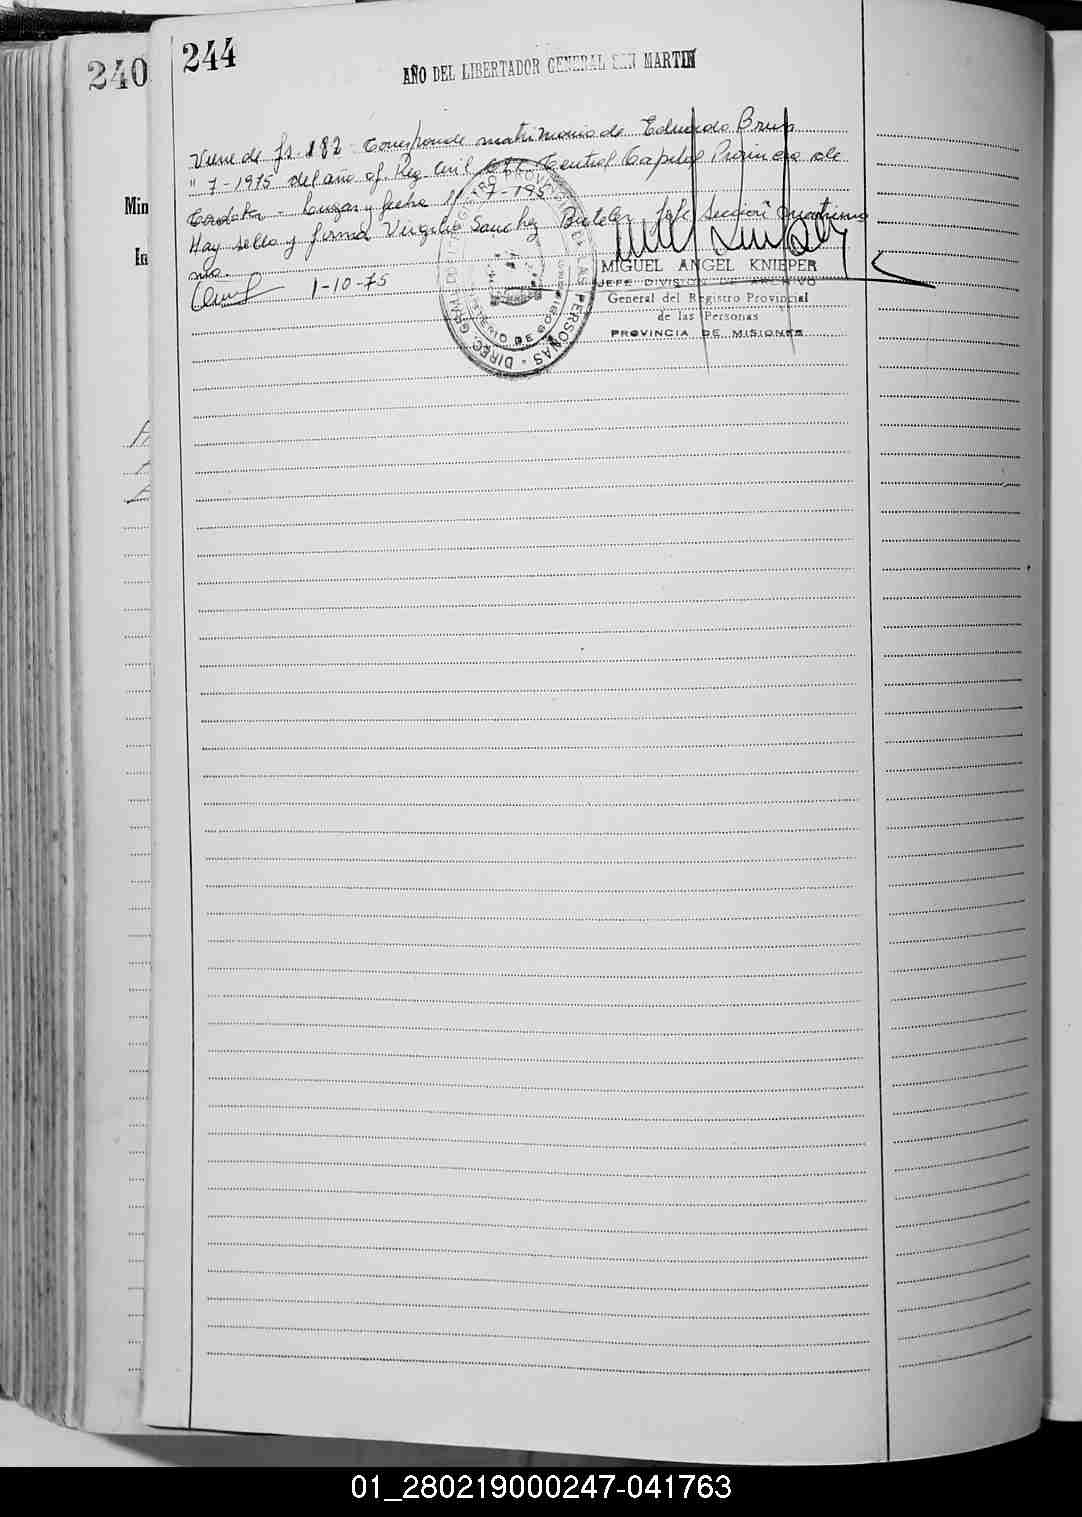 240
244
AÑO DEL LIBERTADOR GENERAL SAN MARTIN
Viene de fs. 182 - Corresponde matrimonio de Eduardo
" 7-1975 del año of. Reg. Civil Central Capital Provincia de
Cordoba - Lugar y fecha 11-7-195
Hay sello y firma Virgilio Sanchez Buteler Jefe Sección matrimo
nio.
1-10-75
Min
In
MIGUEL ANGEL KNIEPER
JEFE DIVISION DE ARCHIVO
General del Registro Provincial
de las Personas
PROVINCIA DE MISIONES
DIREC. GRAL. DEL REGISTRO PROV. DE LAS PERSONAS
MINISTERIO DE GOBIERNO
01_280219000247-041763